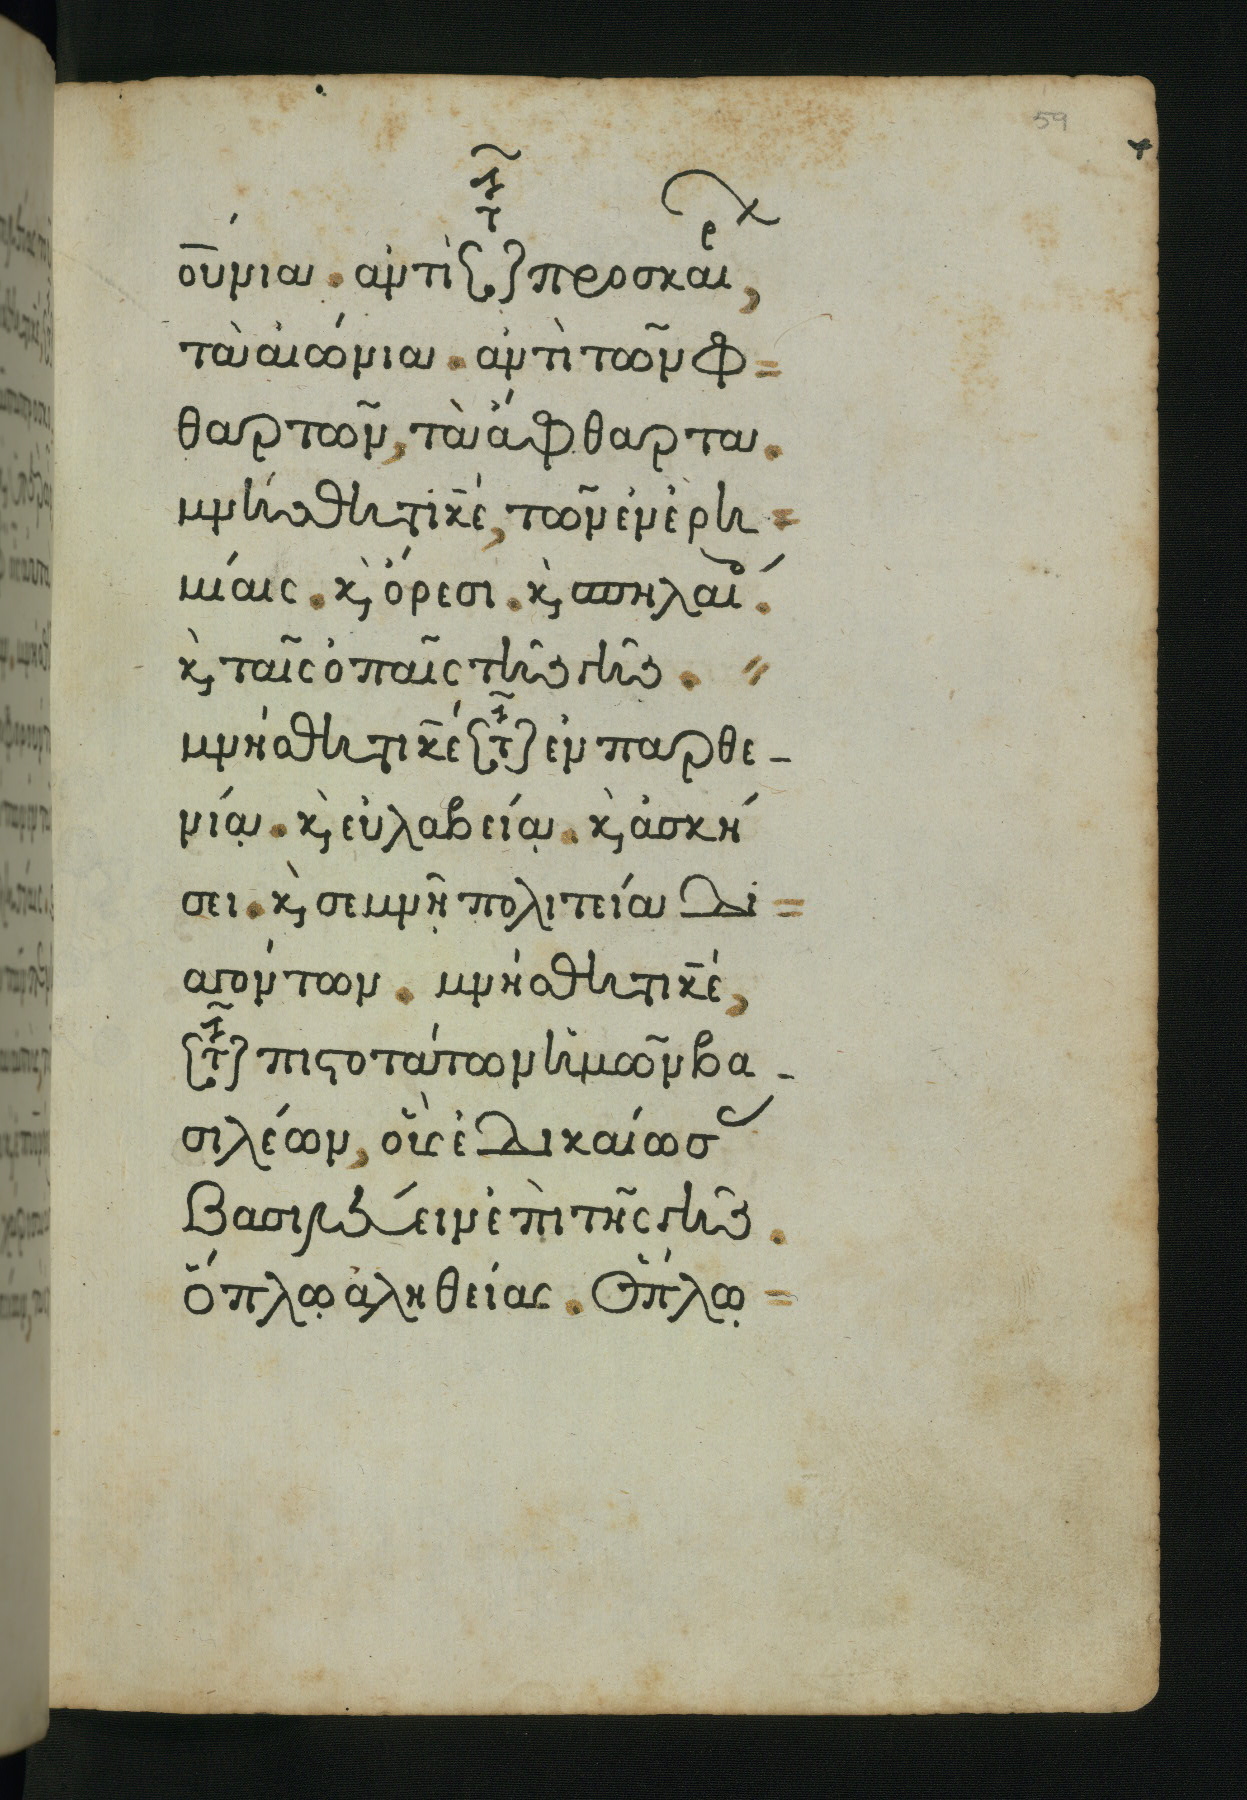 59
οὐράνια. ἀντὶ τῶν προσκαίρ,
τὰ αἰώνια. ἀντὶ τῶν φ=
θαρτῶν, τὰ ἄφθαρτα.
μνήσθητι κ̅ε, τῶν ἐν ἐρη=
μίαις. κ, ὄρεσι. κ, σπηλαί.
κ, ταῖς ὀπαῖς τῆς γῆς.
μνήσθητι κ̅ε τῶν ἐν παρθε-
νίᾳ. κ, εὐλαβείᾳ. κ, ἀσκή
σει. κ, σεμνῇ πολιτεία δι=
αγόντων. μνήσθητι κ̅ε,
τῶν πιστοτάτων ἡμῶν βα-
σιλέων, οὓς ἐδικαίωσ
βασιλεύειν ἐπὶ τῆς γῆς.
ὅπλῳ ἀληθείας. ὅπλῳ=